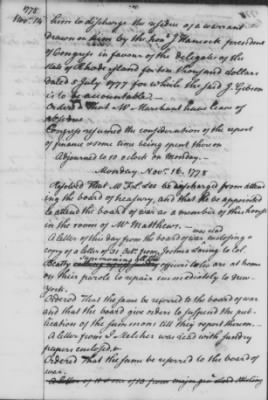 1778
Nov. 14 him to discharge the residue of a warrant
drawn on him by the honble J Hancock president
of Congress in favour of the delegates of the
state of Rhode island for ten thousand dollars
dated 2 July 1777 for which the said J. Gibson
is to be accountable
Ordered That Mr Marchant have leave of
absence
Congress resumed the consideration of the report
of finance & some time being spent thereon
Adjourned to 10 oClock on Monday.
Monday Nov. 16. 1778
Resolved That Mr F. L. Lee be discharged from attend
ing the board of treasury, and that he be appointed
to attend the board of war as a member of this house
in the room of Mr Matthews.
was read
A letter of this day from the board of war enclosing a
copy of a letter of from Joshua Loring to Col.
Beatty summoning all the officers who are at home
on their parole to repair immediately to New-
York.
Ordered That the same be referred to the board of war
and that the board give orders to suspend the pub-
lication of the summons till they report thereon.
A letter from J. Melcher was read with sundry
papers enclosed
Ordered That the same be referred to the board of
war.
A letter of from major genl Lord Stirling